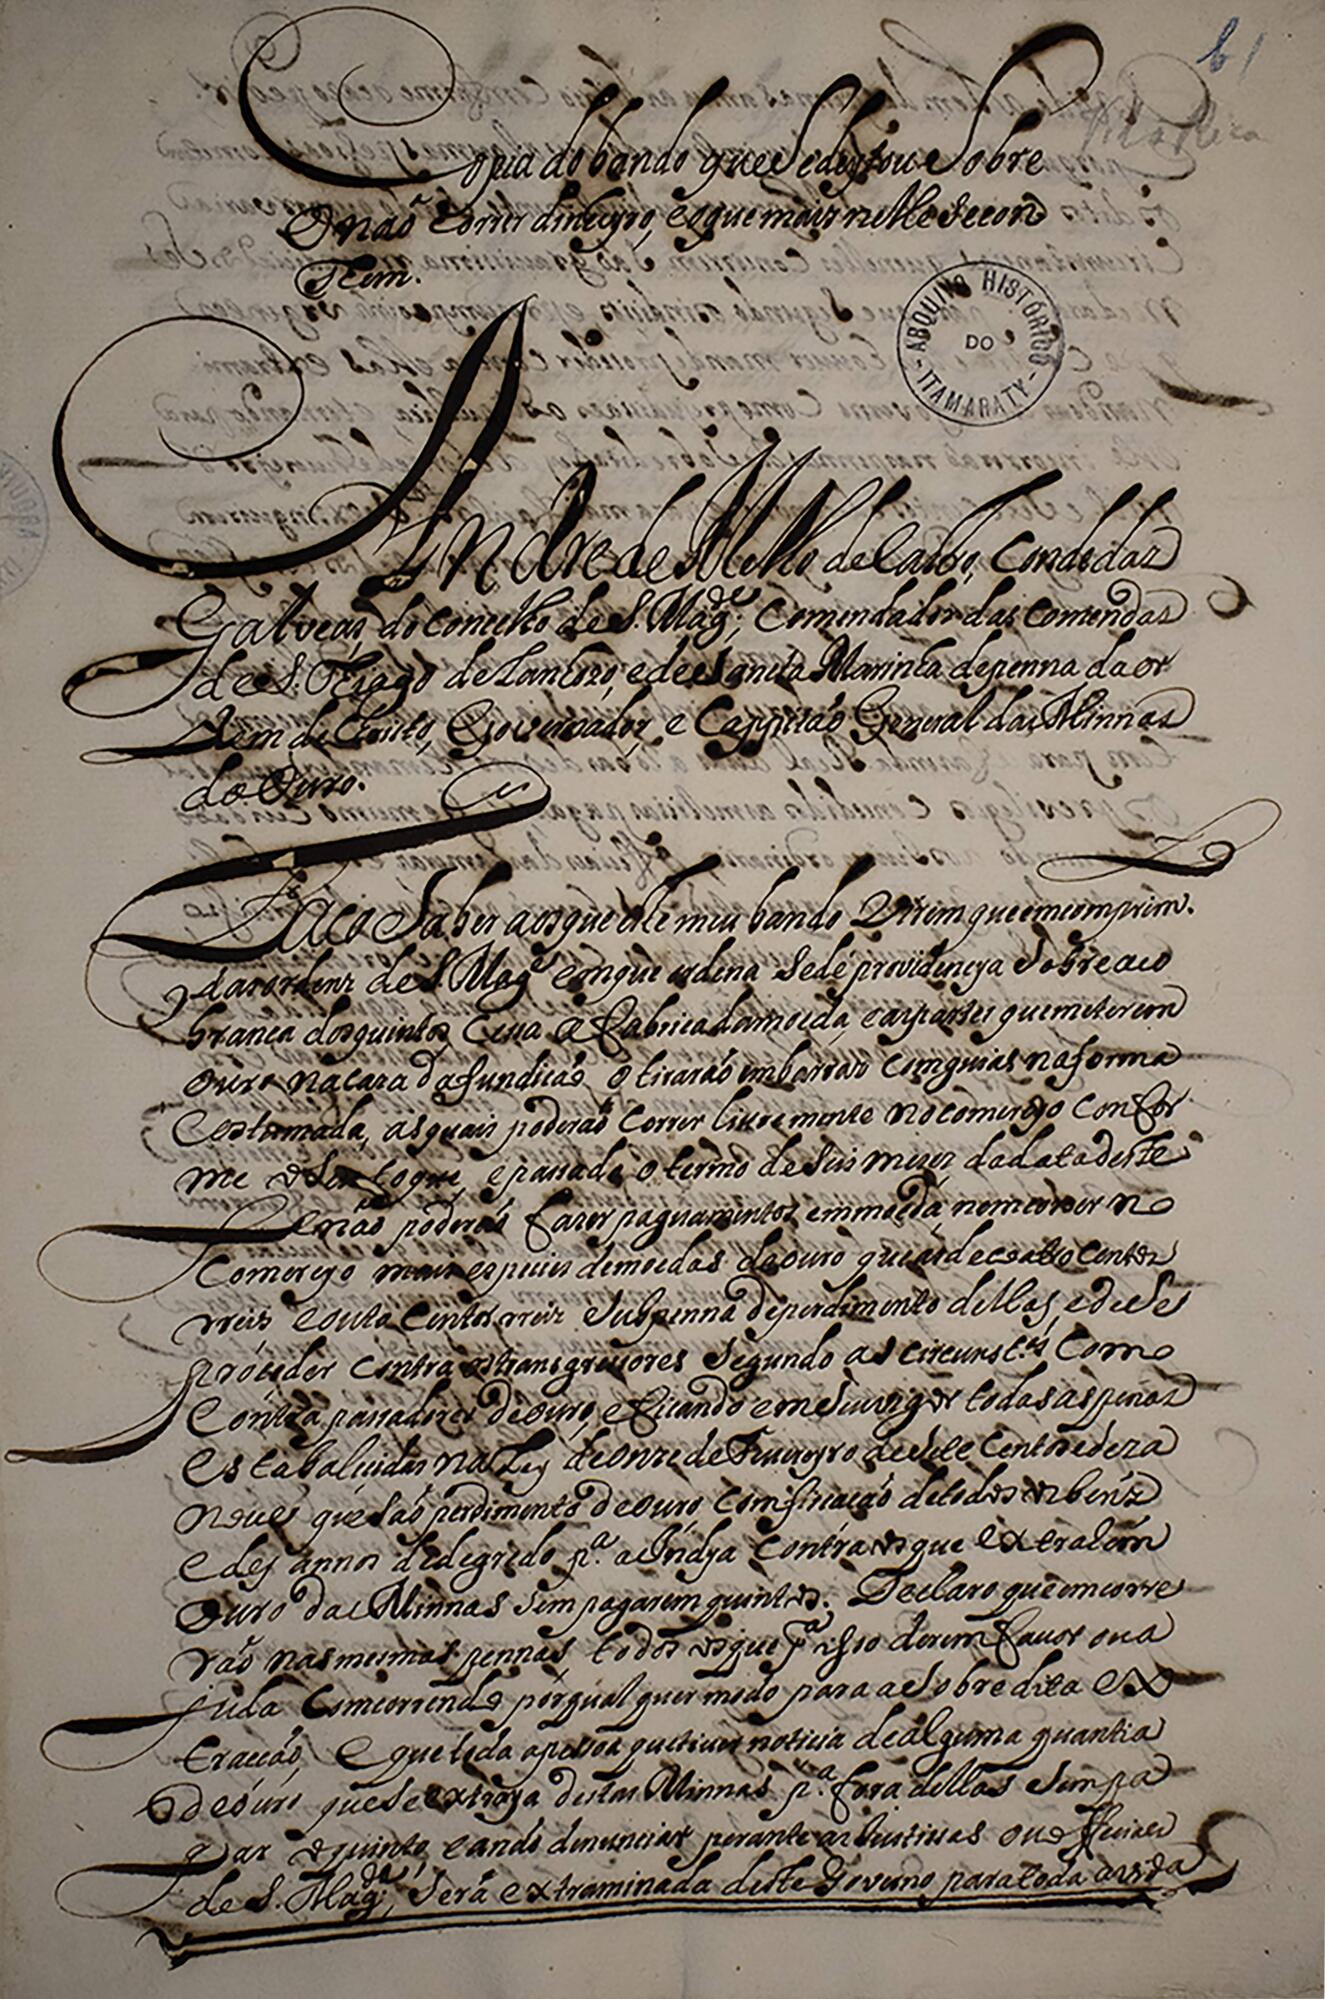 61
Copia do bando que Se deytou Sobre
o não correr dinheyro, e o que mais nelle Secon
tem.
ARQUIVO HISTÓRICO
DO
ITAMARATY
Andre de Mello de Castro, Conde das
Galveas, do concelho de S. Magde; Comendador das Comendas
de S. Tiago de Lanhozo, e de Sancta Marinha depenna da or
dem de Christo, Governador, e Cappitão General das Minnas
do Ouro.
Faço Saber aos que este meu bando Virem que em comprim.to
das ordenz de S. Magde em que ordena Se dé providencya Sobre aco
branca dos quintos, Cessa a Fabrica da moeda, e as partes que meterem
Ouro na caza da fundição o tirarão em barras com guias na forma
Costumada, as quais poderão Correr livremente no comerçyo Confor
me o Seu toque, e passado o termo de Seis mezes da data deste
Se não poderão fazer paguamentos em moeda, nem correr no
Comerçyo mais especies de moedas de Ouro que as de coatro Centos
rreis e outo Centos rreiz Sub penna de perdimento dellas, e de Se
proceder contra os transgressores Segundo as circunst.as Como
Contra passadores de Ouro, e ficando em Seu vigor todas as penas
Estabalecidas na Ley de onze de Fevereyro de Sete Centos e deza
nove, que São perdimento de ouro Comfiscação de todos os bens
e dez annos de degredo p.a a Indya Contra os que extraîrem
Ouro das Minnas Sem pagarem quintos. Declaro que emcorre
rão nas mesmas pennas, todos os que p.a isso derem favor ou a
juda Comcorrendo por qual quer modo para a Sobre dita ex
tracção, E que toda a pessoa que tiver noticia de alguma quantia
de ouro que Se extraya destas Minnas p.a fora dellas Sem pa
gar o quinto, e ando denunciar perante as Justissas ou officiaes
de S. Magde, Será extraminada deste Governo para toda a vida